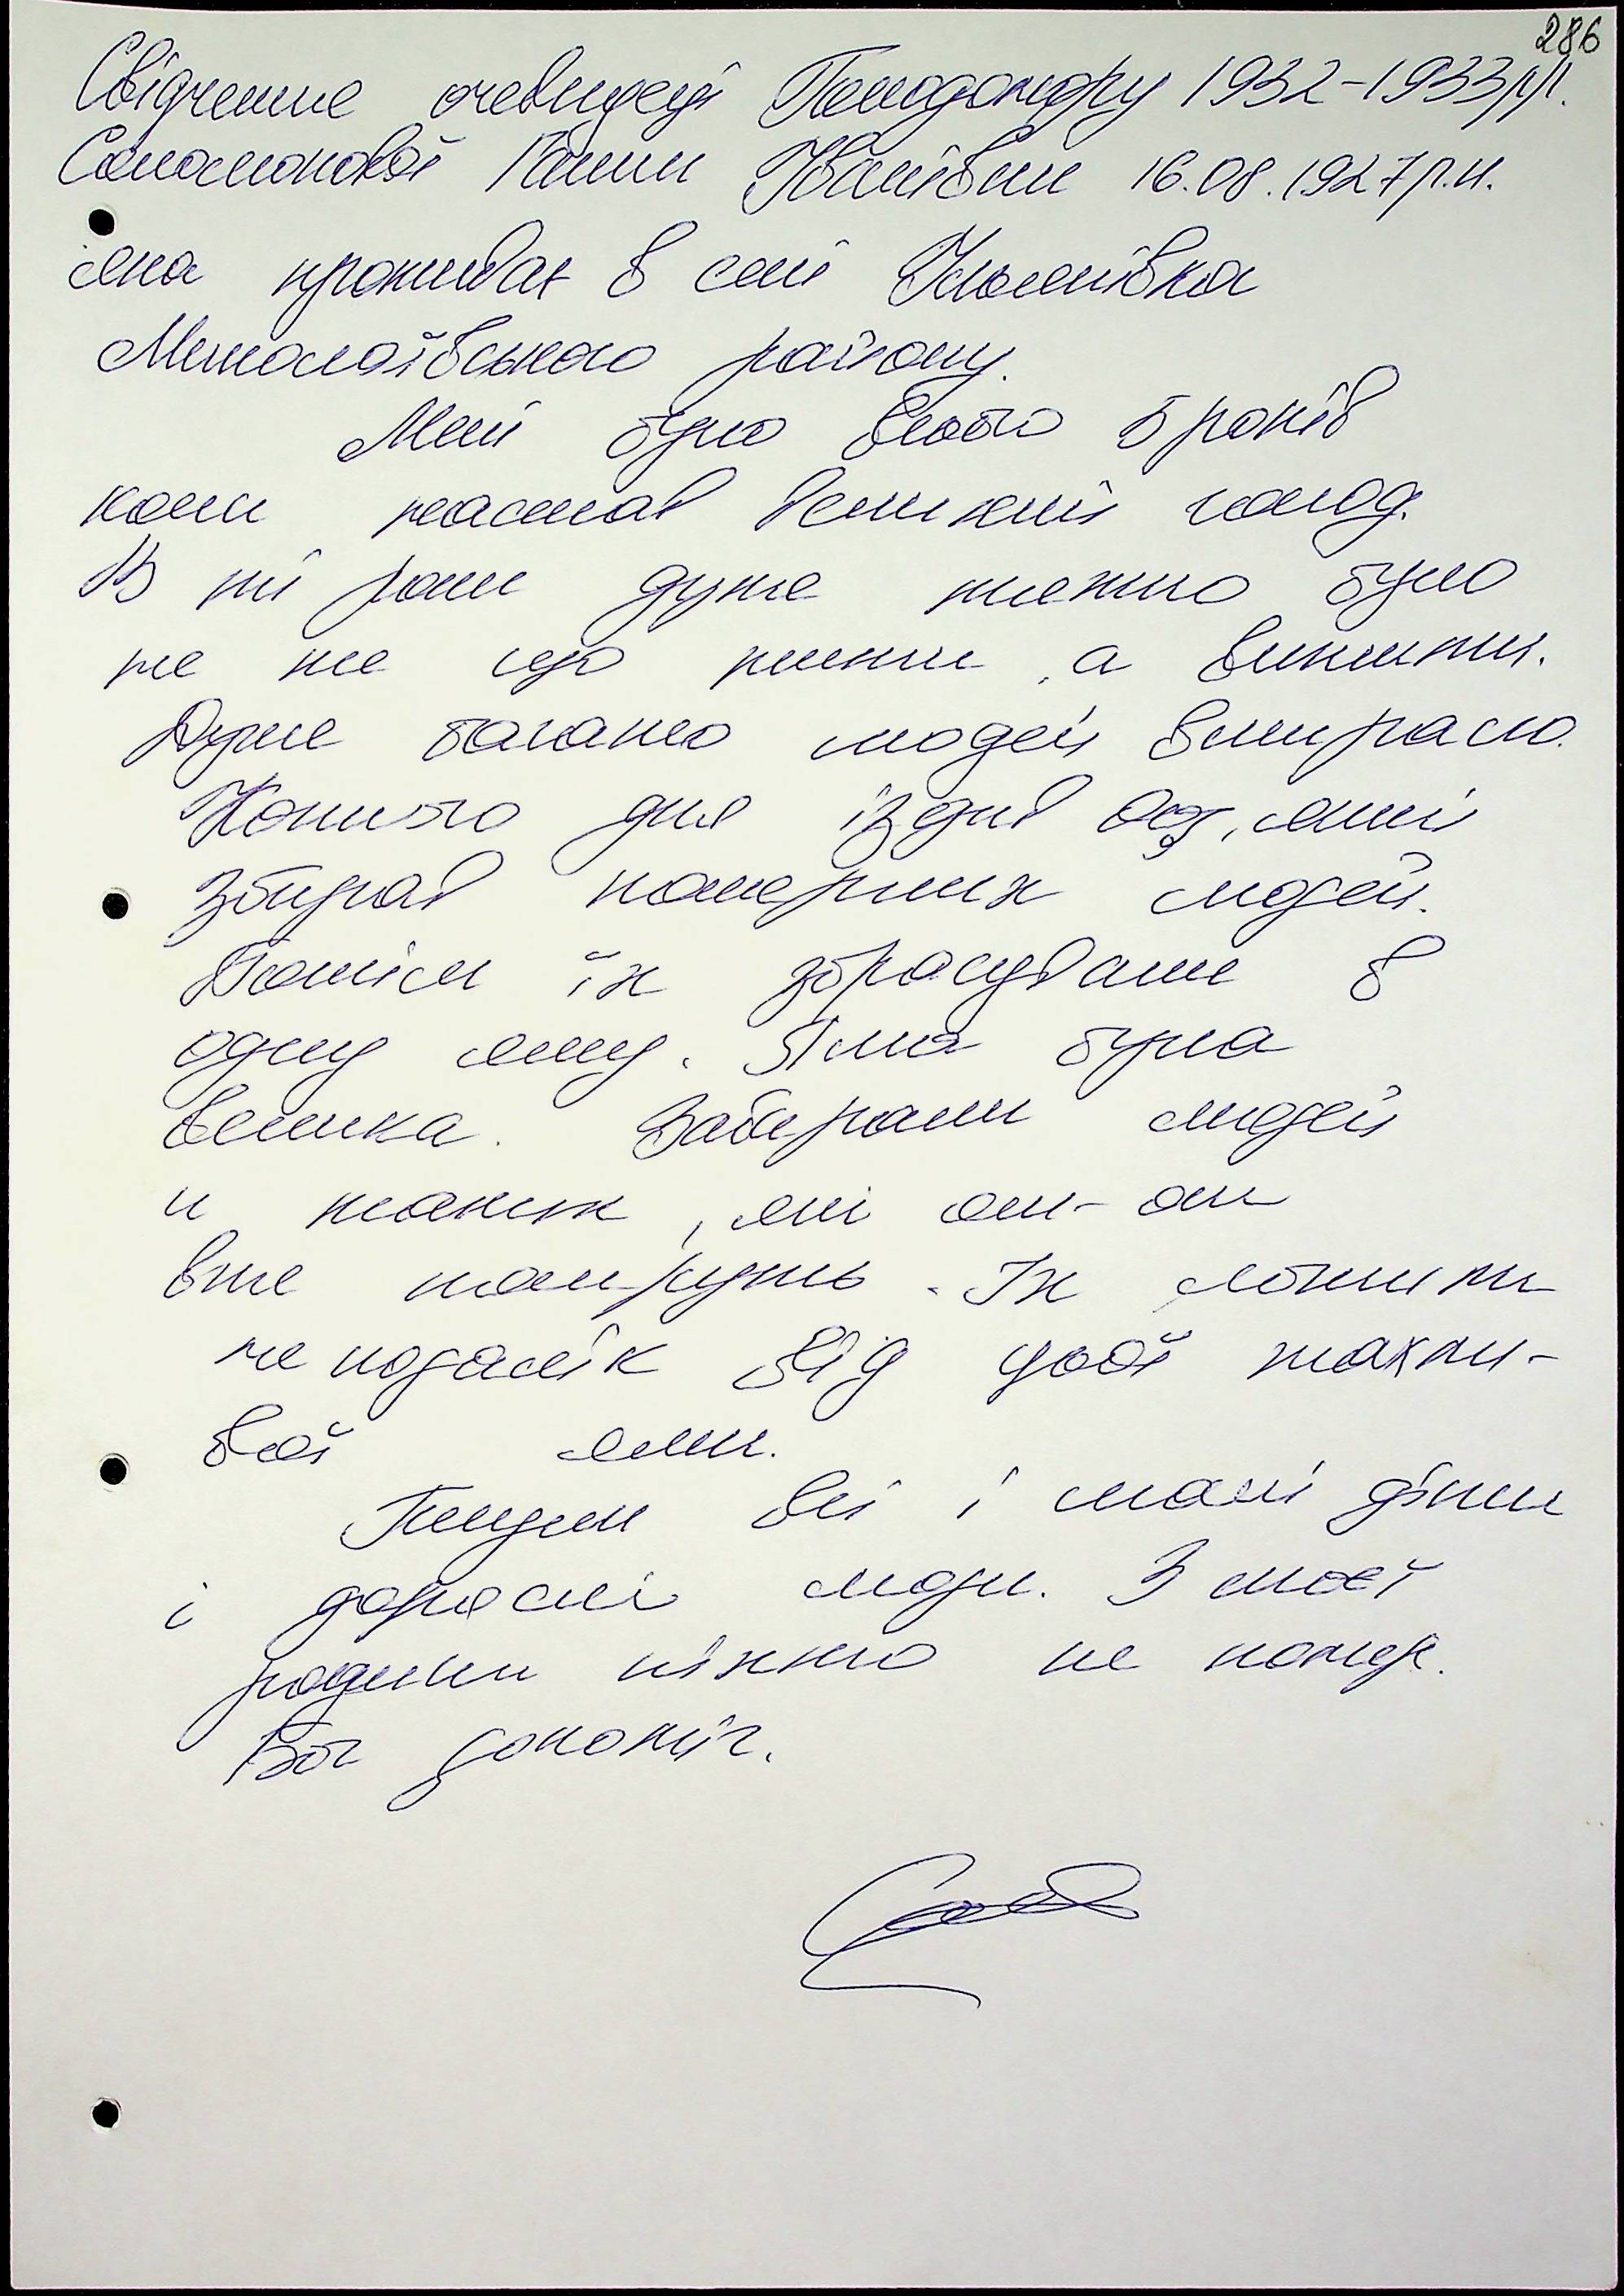 286
Свідчення очевидеці Голодомору 1932-1933рр.
Соломонової Ганни Іванівни 16.08.1927р.н.
яка проживає в селі Ульянівка
Миколаївського району.
Мені було всього 5 років
коли настав великий голод.
В ті роки дуже тяжко було
не не що жити, а вижити.
Дуже багато людей вмирало.
Кожного дня їздив воз, який
збирав померших людей.
Потім їх збрасували в
одну яму. Яма була
велика. Забирали людей
и таких, які от-от
вже помруть. Їх ложили
неподалік від цьої жахли-
вої ями.
Гинули всі і малі діти
і дорослі люди. З моєї
родини ніхто не помер.
Бог допоміг.